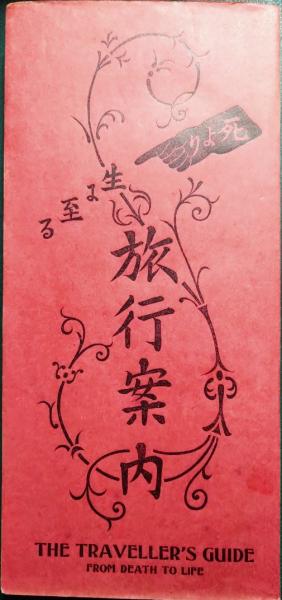 死より
生に至る
旅行案内
THE TRAVELLER'S GUIDE
FROM DEATH TO LIFE